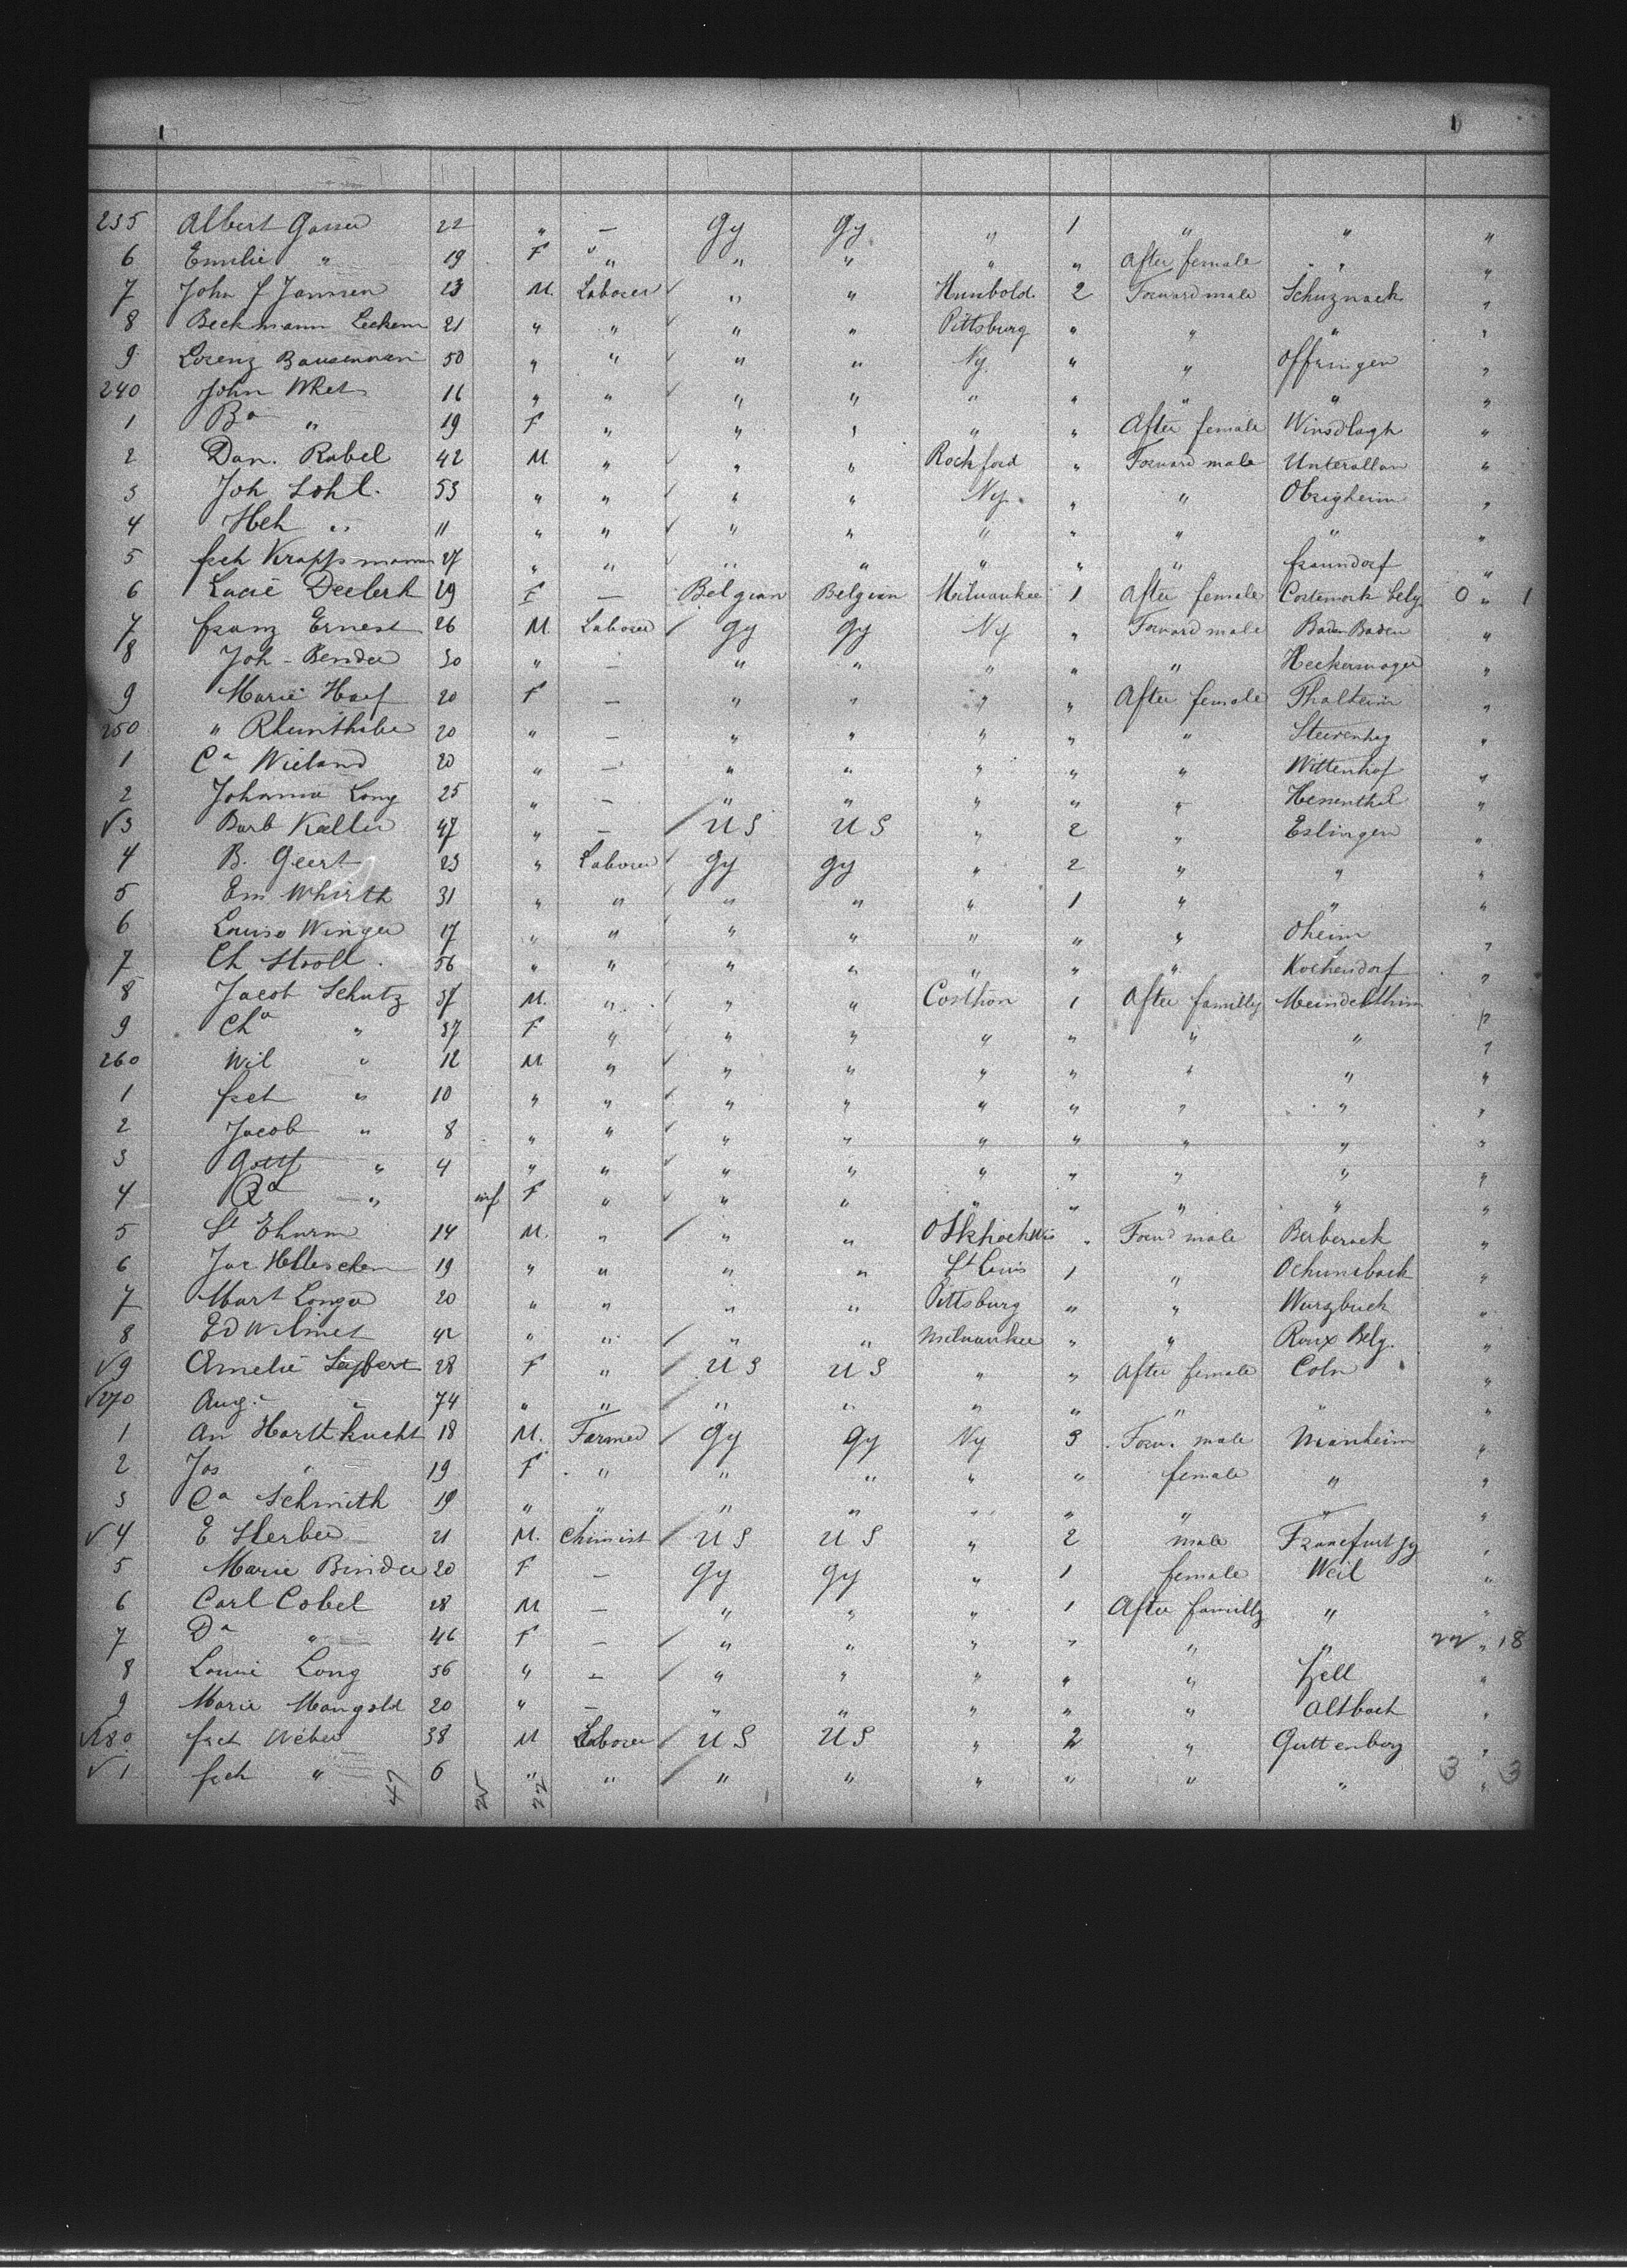 1 1
235 Albert Gasser 22 " — Gy Gy " 1 " " "
6 Emilie " 19 F " " " " " After female " "
7 John f Jannsen 23 M. Laborer " " Humbold. 2 Forward male Schuznach "
8 Beckmann 21 " " " " Pittsburg " " " "
9 Lorenz 50 " " " " Ny. " " Offringen "
240 John 16 " " " " " " " " "
1 Ba " 19 F " " " " " After female Winsdlagh "
2 Dan. Rabel 42 M. " " " Rockford " Forward male Unterallan "
3 Joh Sohl. 53 " " " " Ny. " " Obrigheim "
4 Hch " 11 " " " " " " " " "
5 fich Krapfsmann 27 " " " " " " " fraundorf "
6 Lucie Declerk 19 F — Belgian Belgian Milwaukee 1 After female Belg. 0 " 1
7 franz Ernest 26 M Laborer Gy Gy Ny " Forward male Baden Baden "
8 Joh - Bender 30 " — " " " " " "
9 Marie Harf 20 F — " " " " After female Thalheim "
250 " 20 " — " " " " " "
1 Ca Wieland 20 " — " " " " " Wittenhof "
2 Johanna Long 25 " — " " " " " Hesenthal "
3 Barb Keller 47 " — U S U S " 2 " Eslingen "
4 B. Geert 23 " Laborer Gy Gy " 2 " " "
5 Em Whirth 31 " " " " " 1 " " "
6 Louise Winger 17 " " " " " " " Oheim "
7 Ch Stroll. 56 " " " " " " " Kochendorf "
8 Jacob Schutz 37 M. " " " Costhon 1 After familly "
9 Cha " 37 F " " " " " " " "
260 Wil " 12 M. " " " " " " " "
1 fich " 10 " " " " " " " " "
2 Jacob " 8 " " " " " " " " "
3 Gottf " 4 " " " " " " " " "
4 Ra " inf F " " " " " " " "
5 St Ehurm 14 M. " " " " Forwd male Berberach "
6 Jac 19 " " " " St Louis 1 " Ochunsbach "
7 Mart Longer 20 " " " " Pittsburg " " Wurzbuch "
8 Ed Wilmet 42 " " " " Milwaukee " " Roux Belg. "
9 Amelie Seyfert 28 F " U S U S " " After female Coln "
270 Aug. " 74 " " " " " " " " "
1 An Harttknecht 18 M. Farmer Gy Gy Ny 3 Forw. male Manheim "
2 Jos " 19 F " " " " " female " "
3 Ca Schmith 19 " " " " " " " " "
4 E Sterber 21 M. Chimist U S U S " 2 male Francfurt Gy "
5 Marie Binder 20 F — Gy Gy " 1 female Weil "
6 Carl Cobel 28 M — " " " 1 After familly " "
7 Da " 46 F — " " " " " " 22 " 18
8 Louise Long 36 " — " " " " " Zell "
9 Marie Mangold 20 " — " " " " " Altbach "
280 fich Weber 38 M Laborer U S U S " 2 " Guttenberg "
1 fich " 6 " " " " " " " " 3 " 3
47 25 22